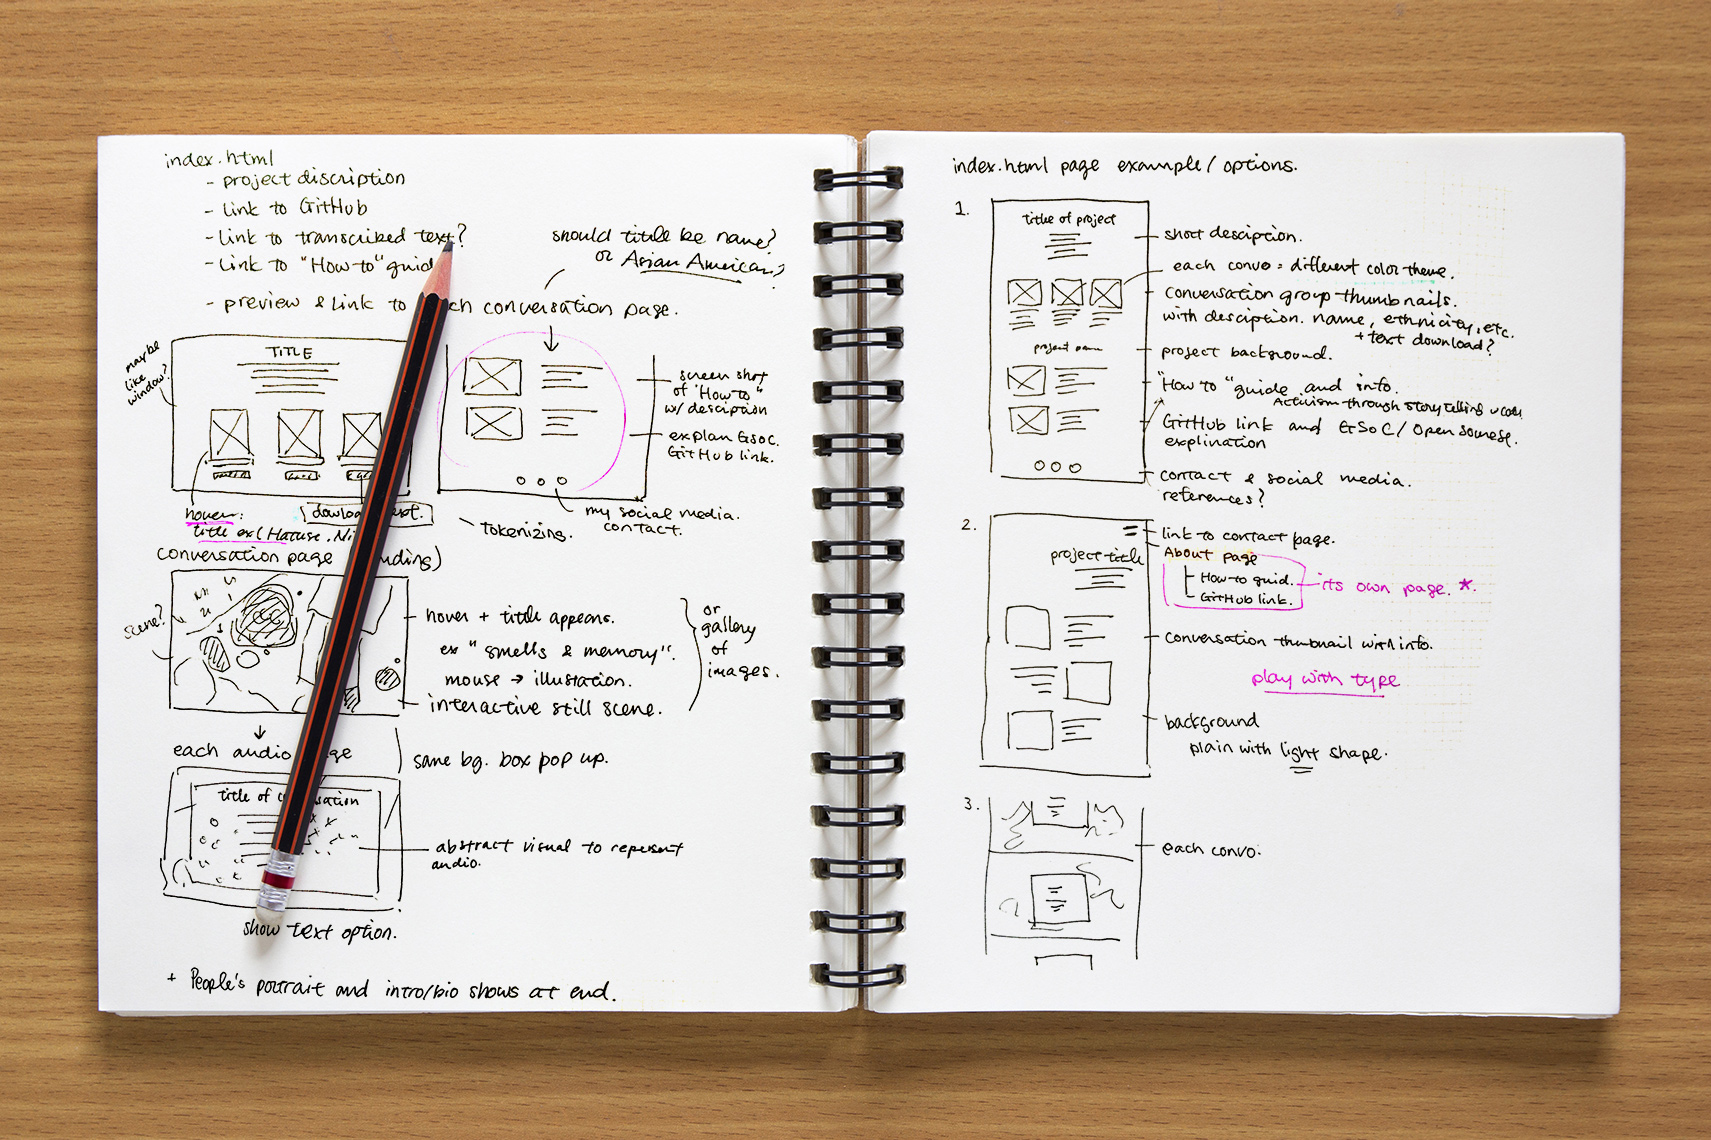 index.html
- project discription
- link to GitHub
- link to transcribed text?
- link to "How to" guid
- preview & link to ch conversation page.
should title be name?
or Asian American?
maybe
like
window?
TITLE
screen shot
of "How to"
w/ desciption
explan GSoC.
GitHub link.
my social media.
contact.
hover:
title ex(
tokenizing.
conversation page
scene?
hover + title appears.
ex "smells & memory".
mouse → illustation.
interactive still scene.
or
gallery
of
images.
each audio
same bg. box pop up.
title of
abstract visual to repersent
audio.
show text option.
+ People's portrait and intro/bio shows at end.
index.html page example/options.
1.
title of project
short desciption.
each convo = different color theme.
conversation group thumbnails.
with desciption. name, ethnicity, etc.
+ text download?
project name
project background.
"How to" guide and info.
Activism through story telling
GitHub link and GSoC/Open sourese.
explination
contact & social media.
references?
2.
link to contact page.
project title
About page
How to guid.
GitHub link.
its own page. *.
conversation thumbnail with info.
play with type
background
plain with light shape.
3.
each convo.